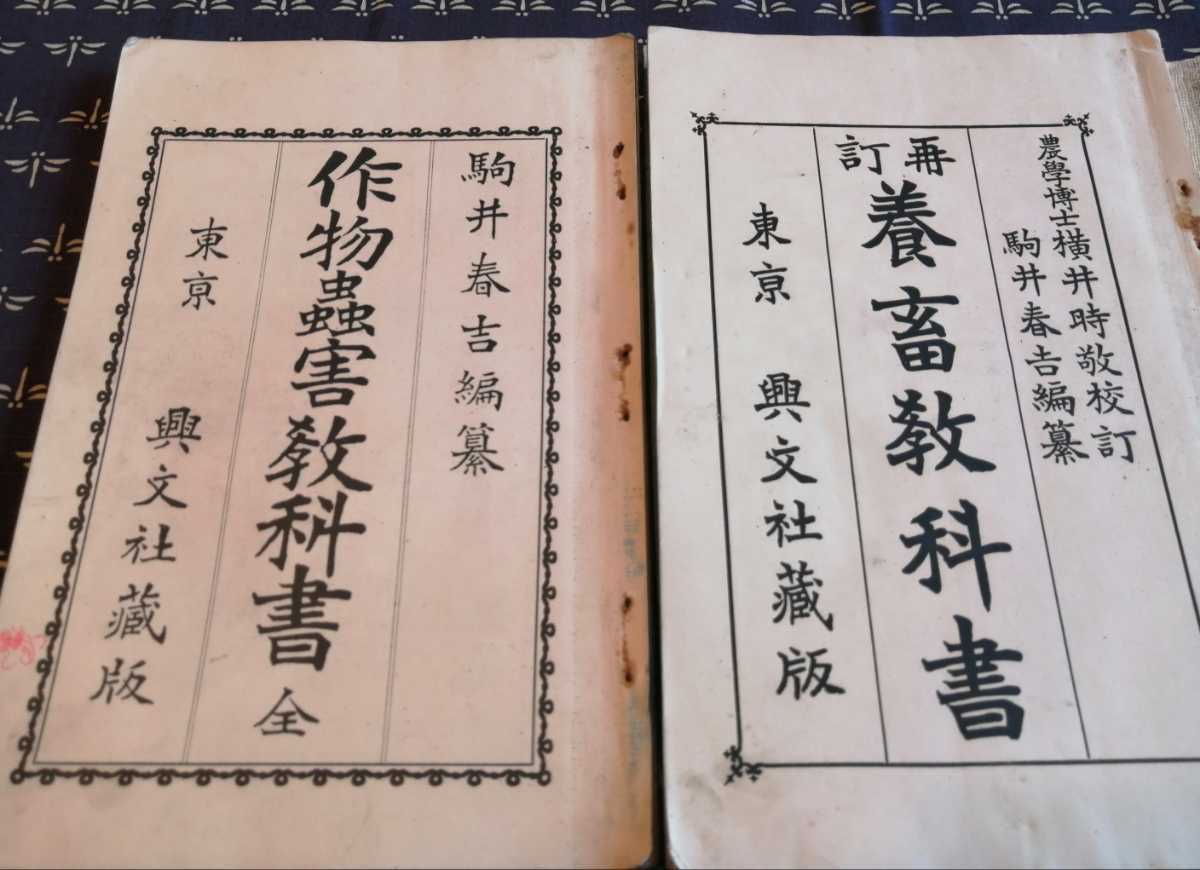 駒井春吉編纂
作物蟲害敎科書 全
東京 興文社藏版
農學博士橫井時敬校訂
駒井春吉編纂
再訂
養畜敎科書
東京 興文社藏版